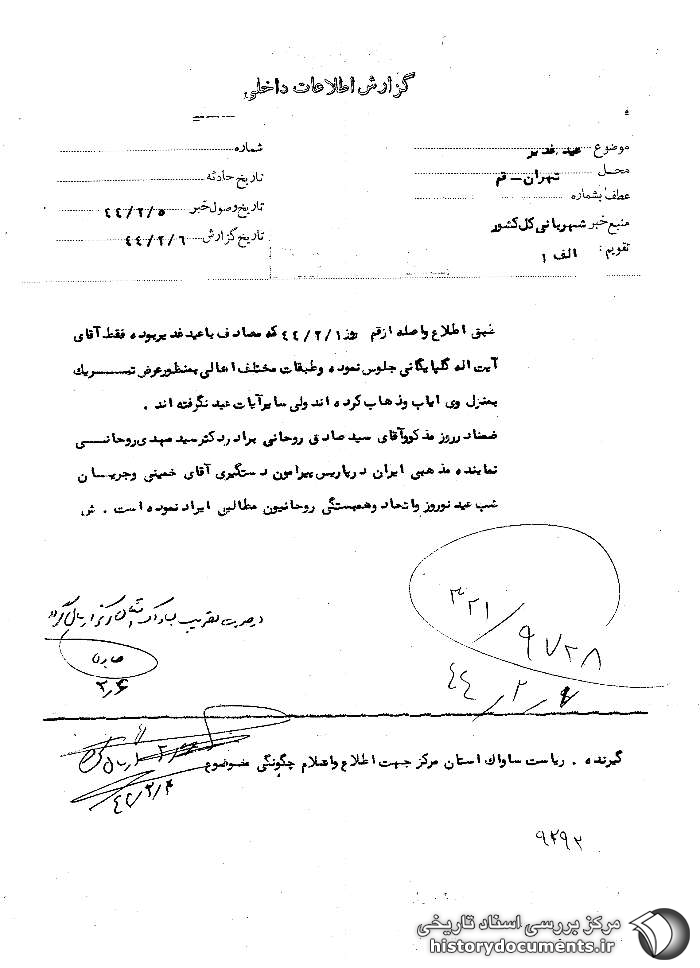 گزارش اطلاعات داخلی
موضوع عید غدیر
محل تهران – قم
عطف بشماره
منبع خبر شهربانی کل کشور
تقویم : الف ۱
شماره
تاریخ حادثه
تاریخ وصول خبر ۴۴/۲/۵
تاریخ گزارش ۴۴/۲/۶
طبق اطلاع واصله از قم روز ۴۴/۲/۱ که مصادف با عید غدیر بوده فقط آقای
آیت اله گلپایگانی جلوس نموده و طبقات مختلف اهالی بمنظور عرض تبریک
بمنزل وی ایاب و ذهاب کرده اند ولی سایر آیات عید نگرفته اند .
ضمنا در روز مذکور آقای سید صادق روحانی برادر دکتر سید مهدی روحانی
نماینده مذهبی ایران در پاریس پیرامون دستگیری آقای خمینی و جریان
شب عید نوروز و اتحاد و همبستگی روحانیون مطالبی ایراد نموده است . ش
۳۲۱/۹۷۲۸
۴۴/۲/
در صورت تصویب
۲/۶
گیرنده . ریاست ساواك استان مرکز جهت اطلاع و اعلام چگونگی موضوع
۹۲۹۲
مرکز بررسی اسناد تاریخی
historydocuments.ir